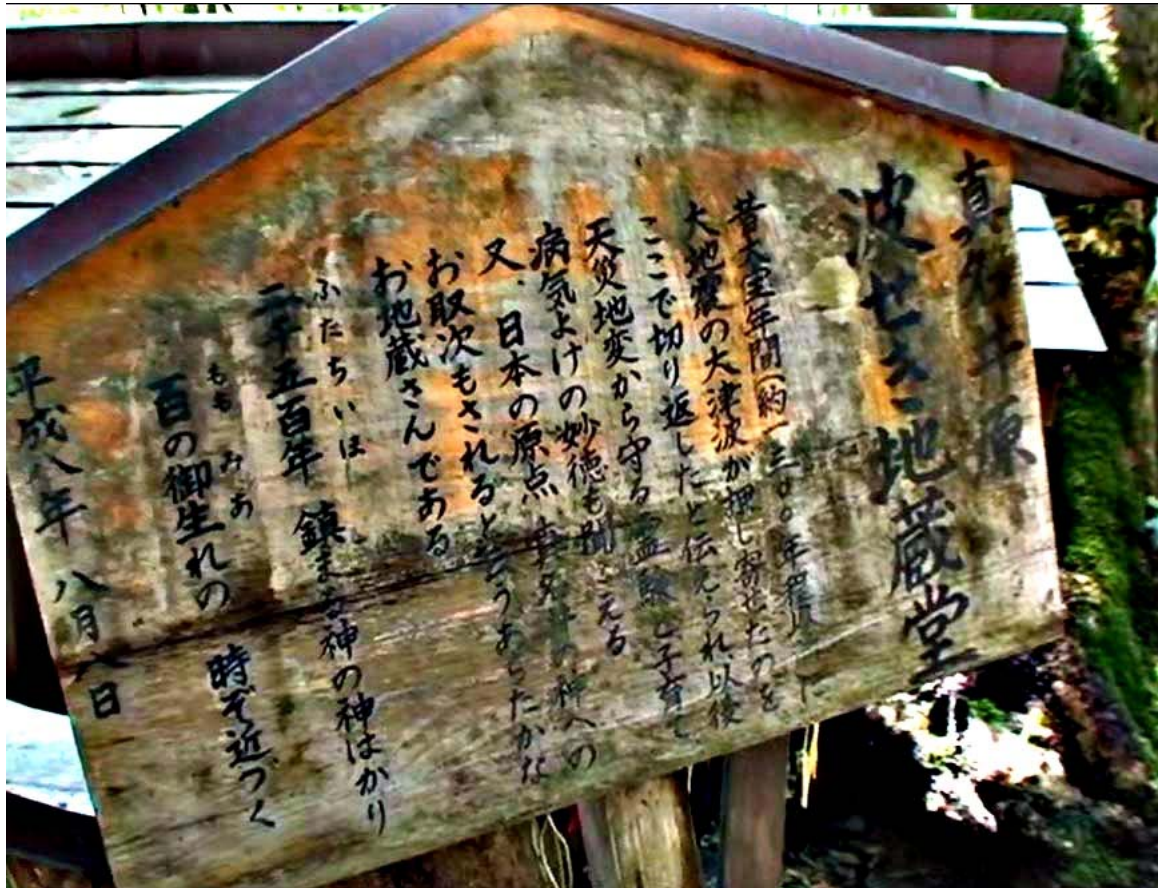 真名井原
波せき地蔵堂
昔大宝年間(約一三〇〇年 に
大地震の大津波が押し寄せたのを
ここで切り返したと伝えられ以後
天災地変から守る霊験と子育て
病気よけの妙徳も聞こえる
又、日本の原点 真名井の神への
お取次もされるとそうあらたかな
お地蔵さんである
ふたちいほ
二千五百年 鎮まる神の神はかり
もも みあ
百の御生れの 時ぞ近づく
平成八年 八月八日